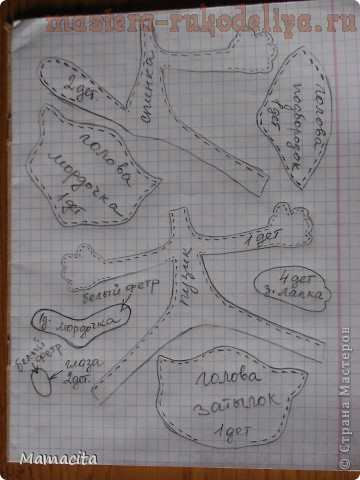 masterа-rukodeliya.ru
2 дет.
спинка
голова
мордочка
1 дет
голова
подбородок
1 дет
1 дет
пузик
4 дет
з. лапка
белый фетр
1д. мордочка
белый
фетр
глаза
2 дет.
голова
затылок
1 дет
Mamacita
© Страна Мастеров